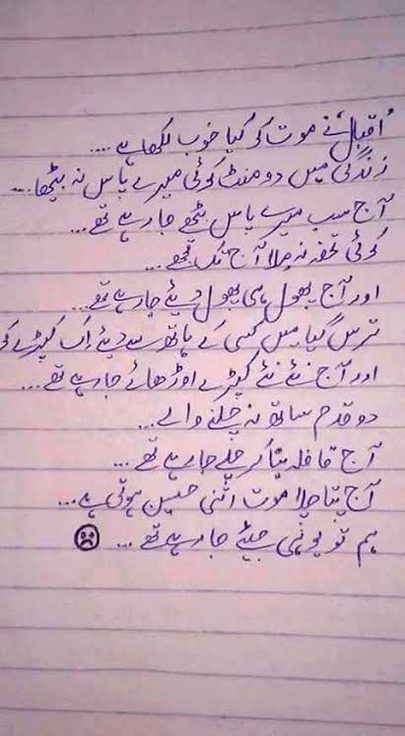 اقبال نے موت کو کیا خوب لکھا ہے ....
زندگی میں دو منٹ کوئی میرے پاس نہ بیٹھا ...
آج سب میرے پاس بیٹھے جا رہے تھے ...
کوئی تحفہ نہ ملا آج تک مجھے ...
اور آج پھول ہی پھول دیئے جا رہے تھے ..
ترس گیا میں کسی کے ہاتھ سے دیئے اک کپڑے کو
اور آج نئے نئے کپڑے اوڑھائے جا رہے تھے ...
دو قدم ساتھ نہ چلنے والے ...
آج قافلہ بنا کر چلے جا رہے تھے ...
آج پتا چلا موت اتنی حسین ہوتی ہے ...
ہم تو یونہی جیئے جا رہے تھے ...